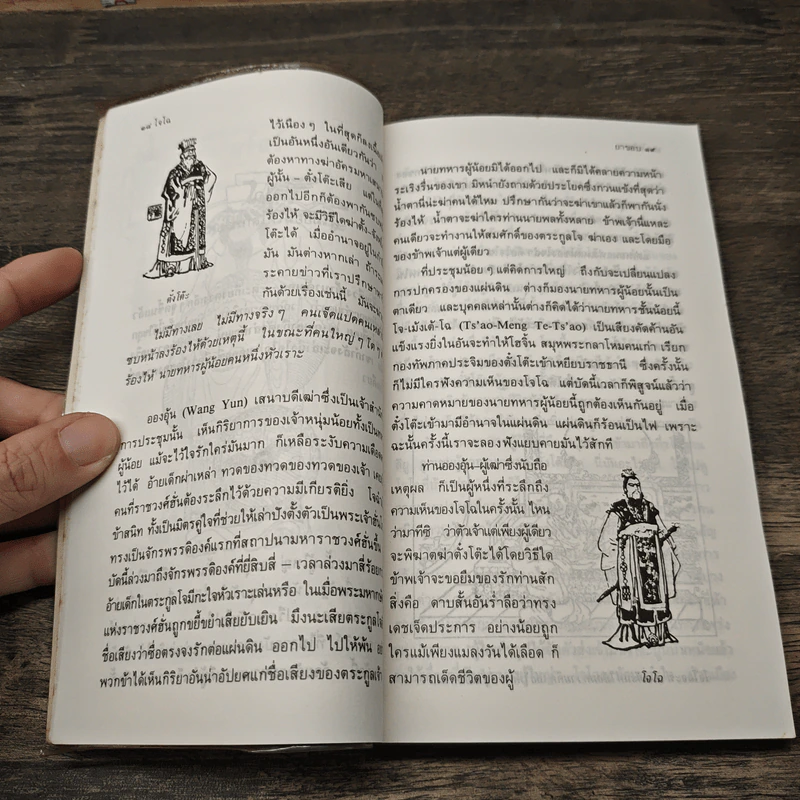 ๑๘ โจโฉ
ไว้เนือง ๆ ในที่สุดก็ลงเนื้อ
เป็นอันหนึ่งอันเดียวกันว่า
ต้องหาทางฆ่าอัครมหาเสนา
ผู้นั้น – ตั๋งโต๊ะเสีย แต่ใน
ออกไปอีกก็ต้องพากัน
ร้องไห้ จะมีวิธีใดฆ่าตั๋ง–
โต๊ะได้ เมื่ออำนาจอยู่ในกำ
มัน มันต่างหากเล่า ถ้าระ
ระคายข่าวที่เราปรึกษา
กันด้วยเรื่องเช่นนี้ มันจะ
ตั๋งโต๊ะ
ไม่มีทางเลย ไม่มีทางจริง ๆ คนเจ็ดแปดคน
ซบหน้าลงร้องไห้ด้วยเหตุนี้ ในขณะที่คนใหญ่ ๆ ใด ๆ
ร้องไห้ นายทหารผู้น้อยคนหนึ่งหัวเราะ
อองอุ้น (Wang Yun) เสนาบดีเฒ่าซึ่งเป็นเจ้าสำนัก
การประชุมนั้น เห็นกิริยาการของเจ้าหนุ่มน้อยทั้งเป็นคน
ผู้น้อย แม้จะไว้ใจรักใคร่มันมาก ก็เหลือระงับความเดือด
ไว้ได้ อ้ายเด็กผ่าเหล่า ทวดของทวดของทวดของเจ้า เคย
คนที่ราชวงศ์ฮั่นต้องระลึกไว้ด้วยความมีเกียรติยิ่ง โจ
ข้าสนิท ทั้งเป็นมิตรคู่ใจที่ช่วยให้เล่าปังตั้งตัวเป็นพระเจ้าฮั่น
ทรงเป็นจักรพรรดิองค์แรกที่สถาปนามหาราชวงศ์ฮั่นขึ้น
บัดนี้ล่วงมาถึงจักรพรรดิองค์ที่ยี่สิบสี่ – เวลาล่วงมาสี่ร้อย
อ้ายเด็กในตระกูลโจมีกะใจหัวเราะเล่นหรือ ในเมื่อพระมหากษัตริย์
แห่งราชวงศ์ฮั่นถูกขยี้ขยำเสียยับเยิน มึงนะเสียตระกูลโจ
ชื่อเสียงว่าซื่อตรงจงรักต่อแผ่นดิน ออกไป ไปให้พ้น
พวกข้าได้เห็นกิริยาอันน่าอัปยศแก่ชื่อเสียงของตระกูลเจ้า
ยาขอบ ๑๙
นายทหารผู้น้อยมิได้ออกไป และก็มิได้คลายความหน้า
ระเริงรื่นของเขา มิหนำยังถามด้วยประโยคซึ่งกวนแข้งที่สุดว่า
น้ำตานี่น่ะฆ่าคนได้ไหม ปรึกษากันว่าจะฆ่าเขาแล้วก็พากันนั่ง
ร้องไห้ น้ำตาจะฆ่าใครท่านนายพลทั้งหลาย ข้าพเจ้านี่แหละ
คนเดียวจะทำงานให้สมศักดิ์ของตระกูลโจ ฆ่าเอง และโดยมือ
ของข้าพเจ้าแต่ผู้เดียว
ที่ประชุมน้อย ๆ แต่คิดการใหญ่ ถึงกับจะเปลี่ยนแปลง
การปกครองของแผ่นดิน ต่างก็มองนายทหารผู้น้อยนั้นเป็น
ตาเดียว และบุคคลเหล่านั้นต่างก็คิดได้ว่านายทหารชั้นน้อยนี้
โจ-เม้งเต้-โฉ (Ts'ao-Meng Te-Ts'ao) เป็นเสียงคัดค้านอัน
แข็งแรงยิ่งในอันจะทำให้โฮจิ๋น สมุหพระกลาโหมคนเก่า เรียก
กองทัพภาคประจิมของตั๋งโต๊ะเข้าเหยียบราชธานี ซึ่งครั้งนั้น
ก็ไม่มีใครฟังความเห็นของโจโฉ แต่บัดนี้เวลาก็พิสูจน์แล้วว่า
ความคาดหมายของนายทหารผู้น้อยนี้ถูกต้องเห็นกันอยู่ เมื่อ
ตั๋งโต๊ะเข้ามามีอำนาจในแผ่นดิน แผ่นดินก็ร้อนเป็นไฟ เพราะ
ฉะนั้นครั้งนี้เราจะลองฟังแยบคายมันไว้สักที
ท่านอองอุ้น–ผู้เฒ่าซึ่งนับถือ
เหตุผล ก็เป็นผู้หนึ่งที่ระลึกถึง
ความเห็นของโจโฉในครั้งนั้น ไหน
ว่ามาทีซิ ว่าตัวเจ้าแต่เพียงผู้เดียว
จะพิฆาตฆ่าตั๋งโต๊ะได้โดยวิธีใด
ข้าพเจ้าจะขอยืมของรักท่านสัก
สิ่งคือ ดาบสั้นอันร่ำลือว่าทรง
เดชเจ็ดประการ อย่างน้อยถูก
ใครแม้เพียงแมลงวันได้เลือด ก็
สามารถเด็ดชีวิตของผู้
โจโฉ